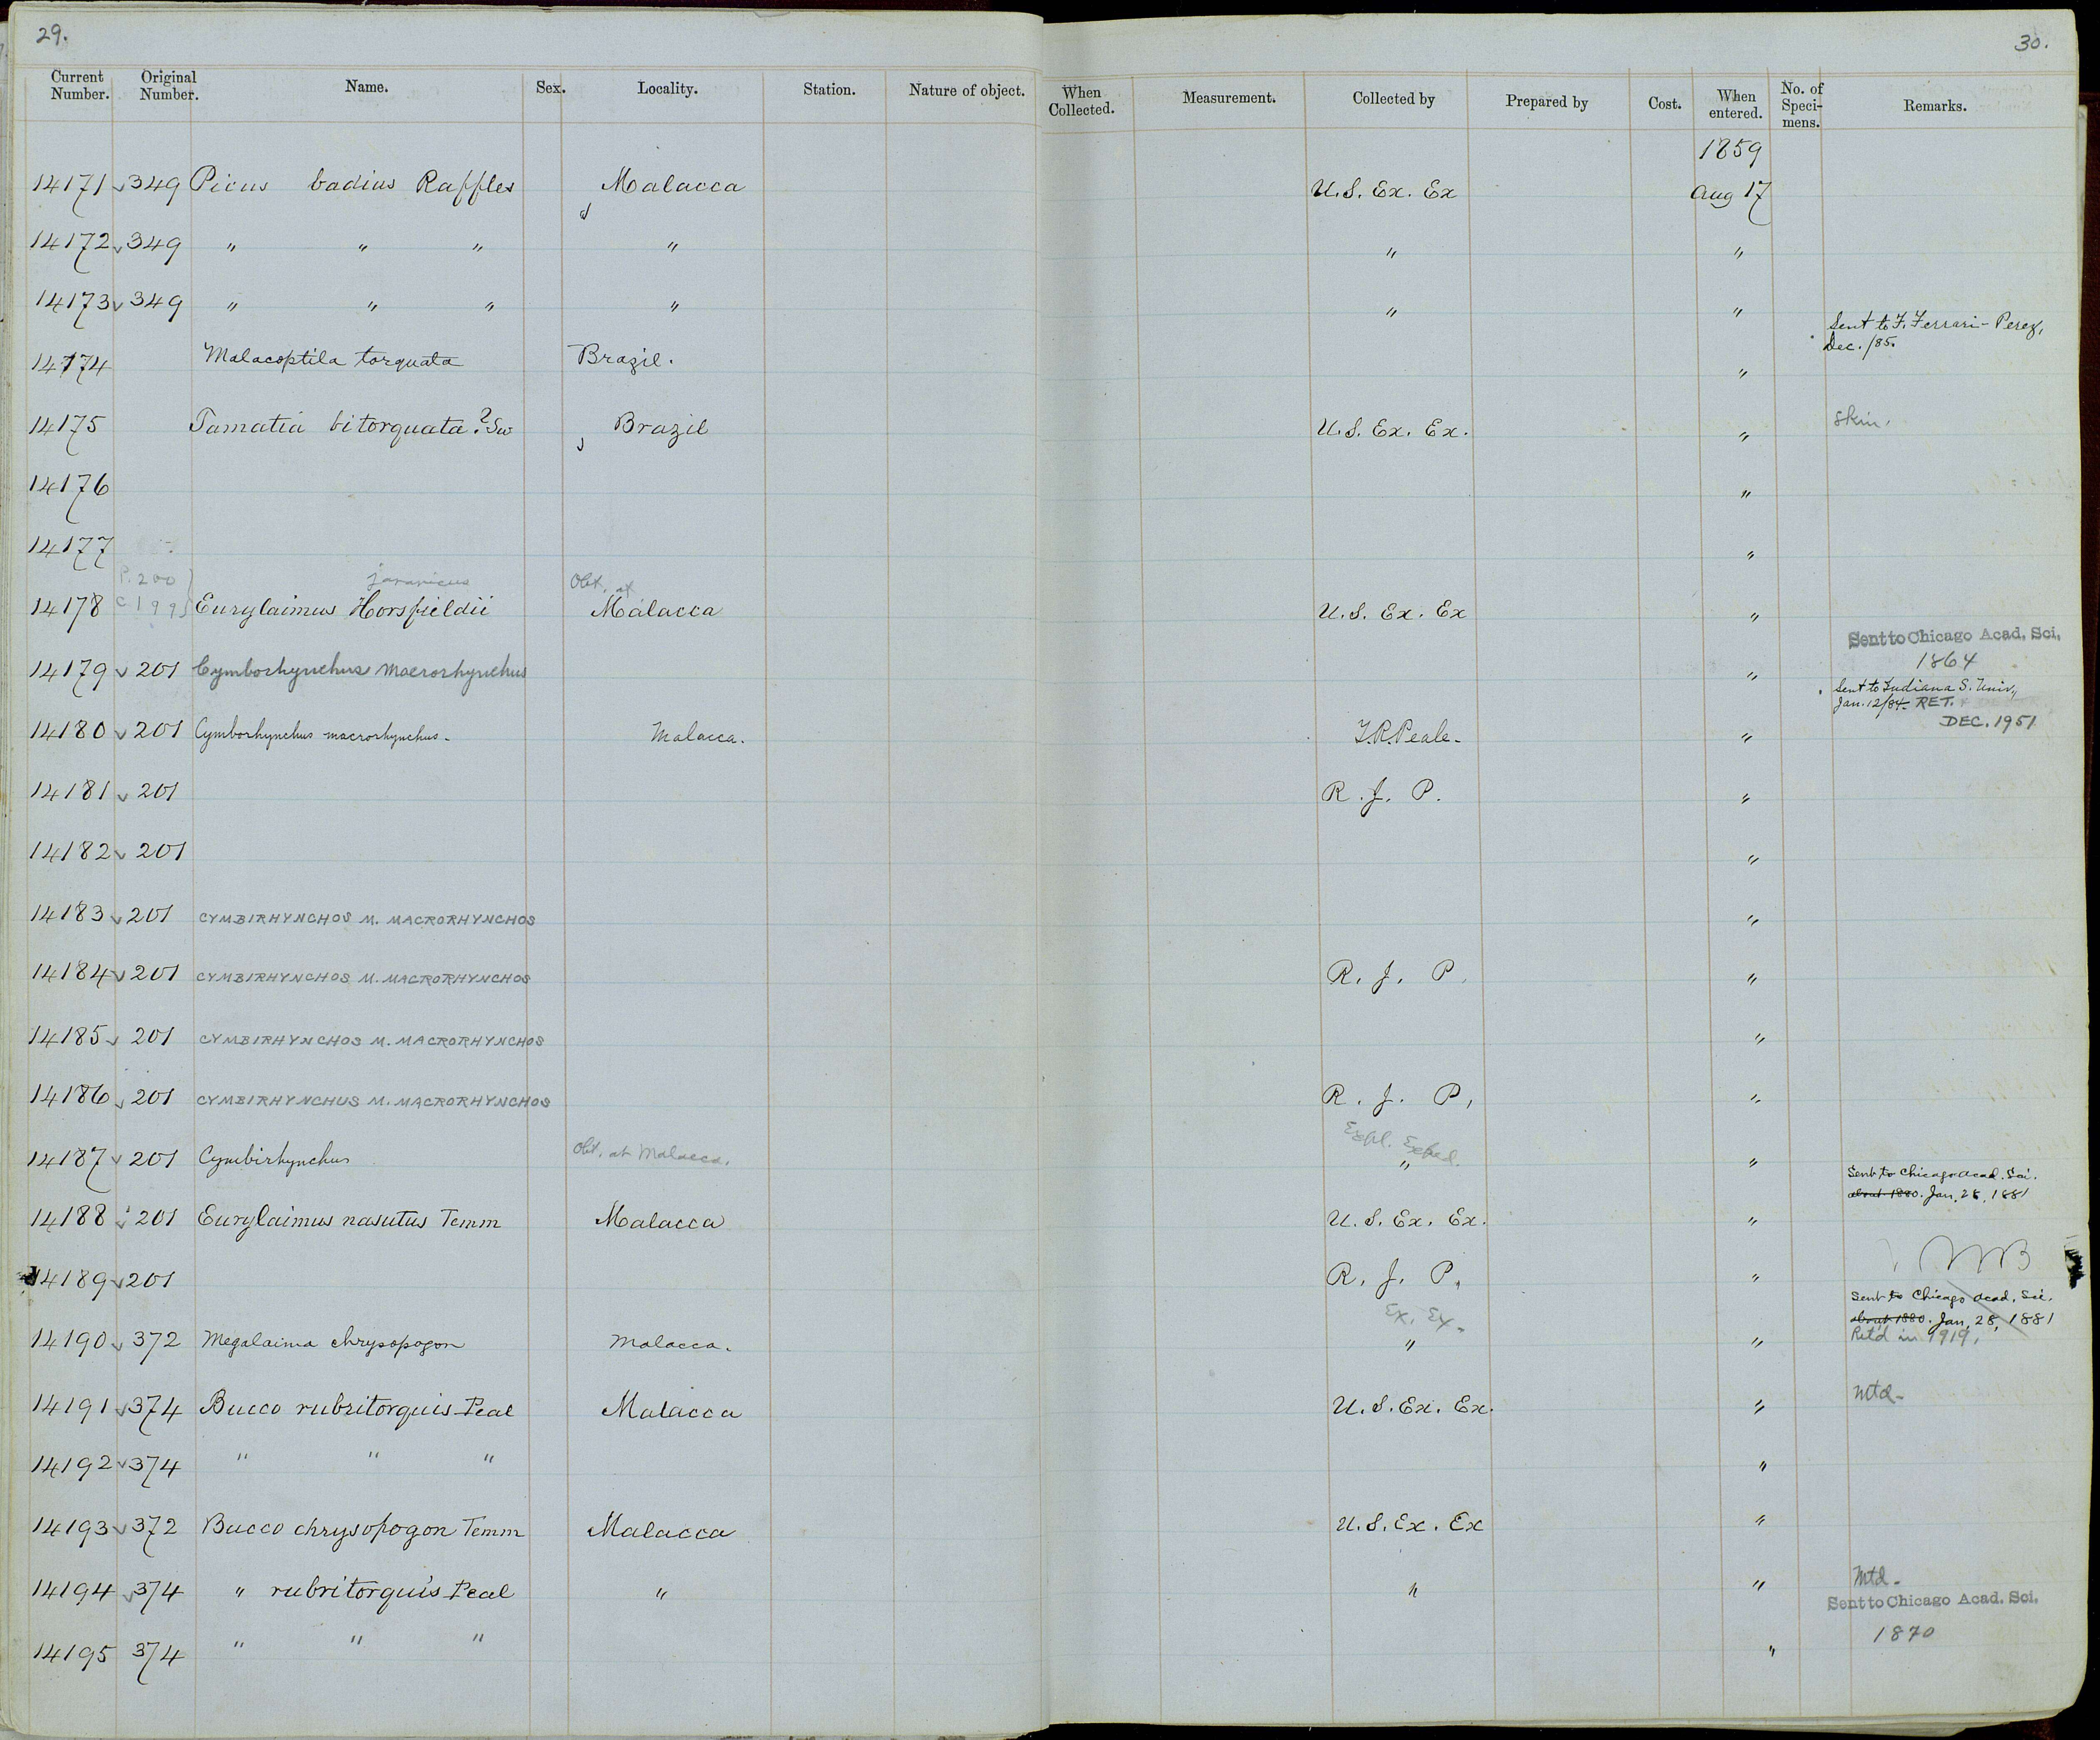 29.
30.
Current Number. Original Number. Name. Sex. Locality. Station. Nature of object. When Collected. Measurement. Collected by Prepared by Cost. When entered. No. of Speci-mens. Remarks.
1859
14171 349 Picus badius Raffles Malacca U.S. Ex. Ex Aug 17
14172 349 " " " " " "
14173 349 " " " " " "
Sent to F. Ferrari-Perez,
Dec. /85.
14174 Malacoptila torquata Brazil. "
14175 Tamatia bitorquata? Sw Brazil U.S. Ex. Ex. " Skin.
14176 "
14177 "
P. 200 javanicus Obt. at
14178 C 199 Eurylaimus Horsfieldii Malacca U.S. Ex. Ex "
Sent to Chicago Acad. Sci.
1864
14179 201 Cymborhynchus macrorhynchus "
Sent to Indiana S. Univ.,
Jan. 12/84. RET.
DEC. 1951
14180 201 Cymborhynchus macrorhynchus. Malacca. T.R. Peale. "
14181 201 R. J. P. "
14182 201 "
14183 201 CYMBIRHYNCHOS M. MACRORHYNCHOS "
14184 201 CYMBIRHYNCHOS M. MACRORHYNCHOS R. J. P. "
14185 201 CYMBIRHYNCHOS M. MACRORHYNCHOS "
14186 201 CYMBIRHYNCHUS M. MACRORHYNCHOS R. J. P. "
Expl. Exped.
14187 201 Cymbirhynchus Obt. at Malacca. " "
Sent to Chicago Acad. Sci.
about 1880. Jan. 28, 1881
14188 201 Eurylaimus nasutus Temm Malacca U.S. Ex. Ex. "
14189 201 R. J. P. "
Ex. Ex.
Sent to Chicago Acad. Sci.
about 1880. Jan. 28, 1881
Ret'd in 1919.
14190 372 Megalaima chrysopogon Malacca. " "
14191 374 Bucco rubritorquis Peal Malacca U.S. Ex. Ex. " Mtd.
14192 374 " " " "
14193 372 Bucco chrysopogon Temm Malacca U.S. Ex. Ex "
14194 374 " rubritorquis Peal " " " Mtd.
Sent to Chicago Acad. Sci.
1870
14195 374 " " " "